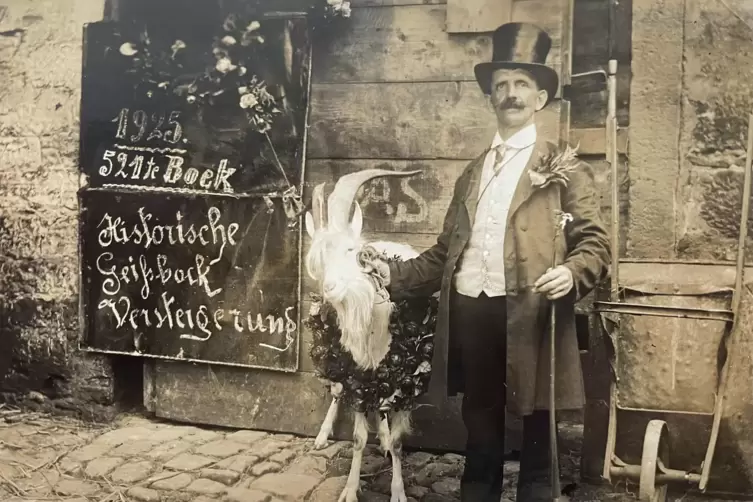 1925.
521te Boek
Historische
Geißbock
Versteigerung